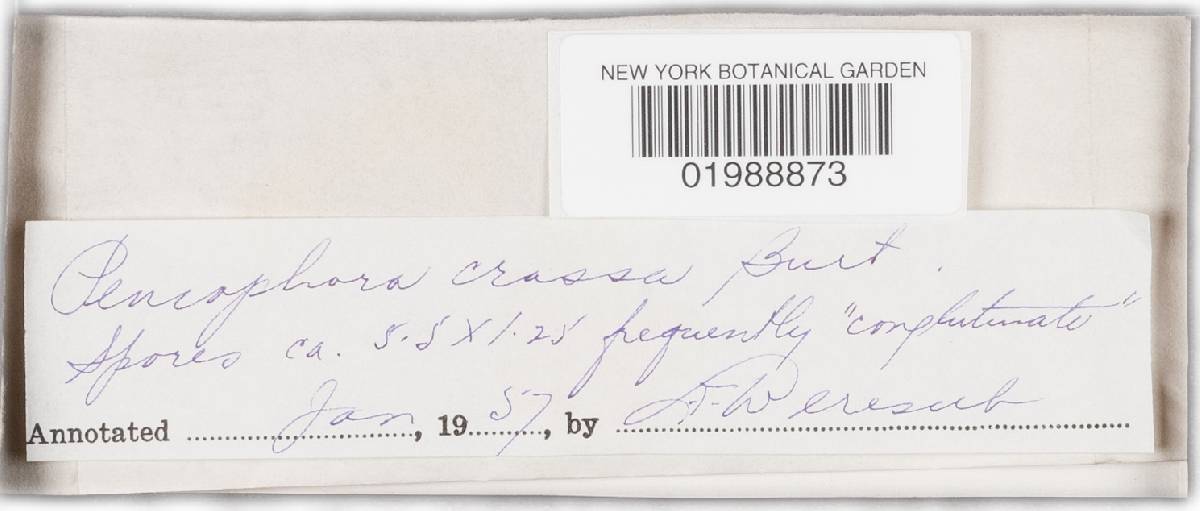 NEW YORK BOTANICAL GARDEN
01988873
Peniophora crassa Burt.
Spores ca. 5.5 X 1.25 frequently "conglutinate"
Annotated Jan, 1957, by L.K. Weresub